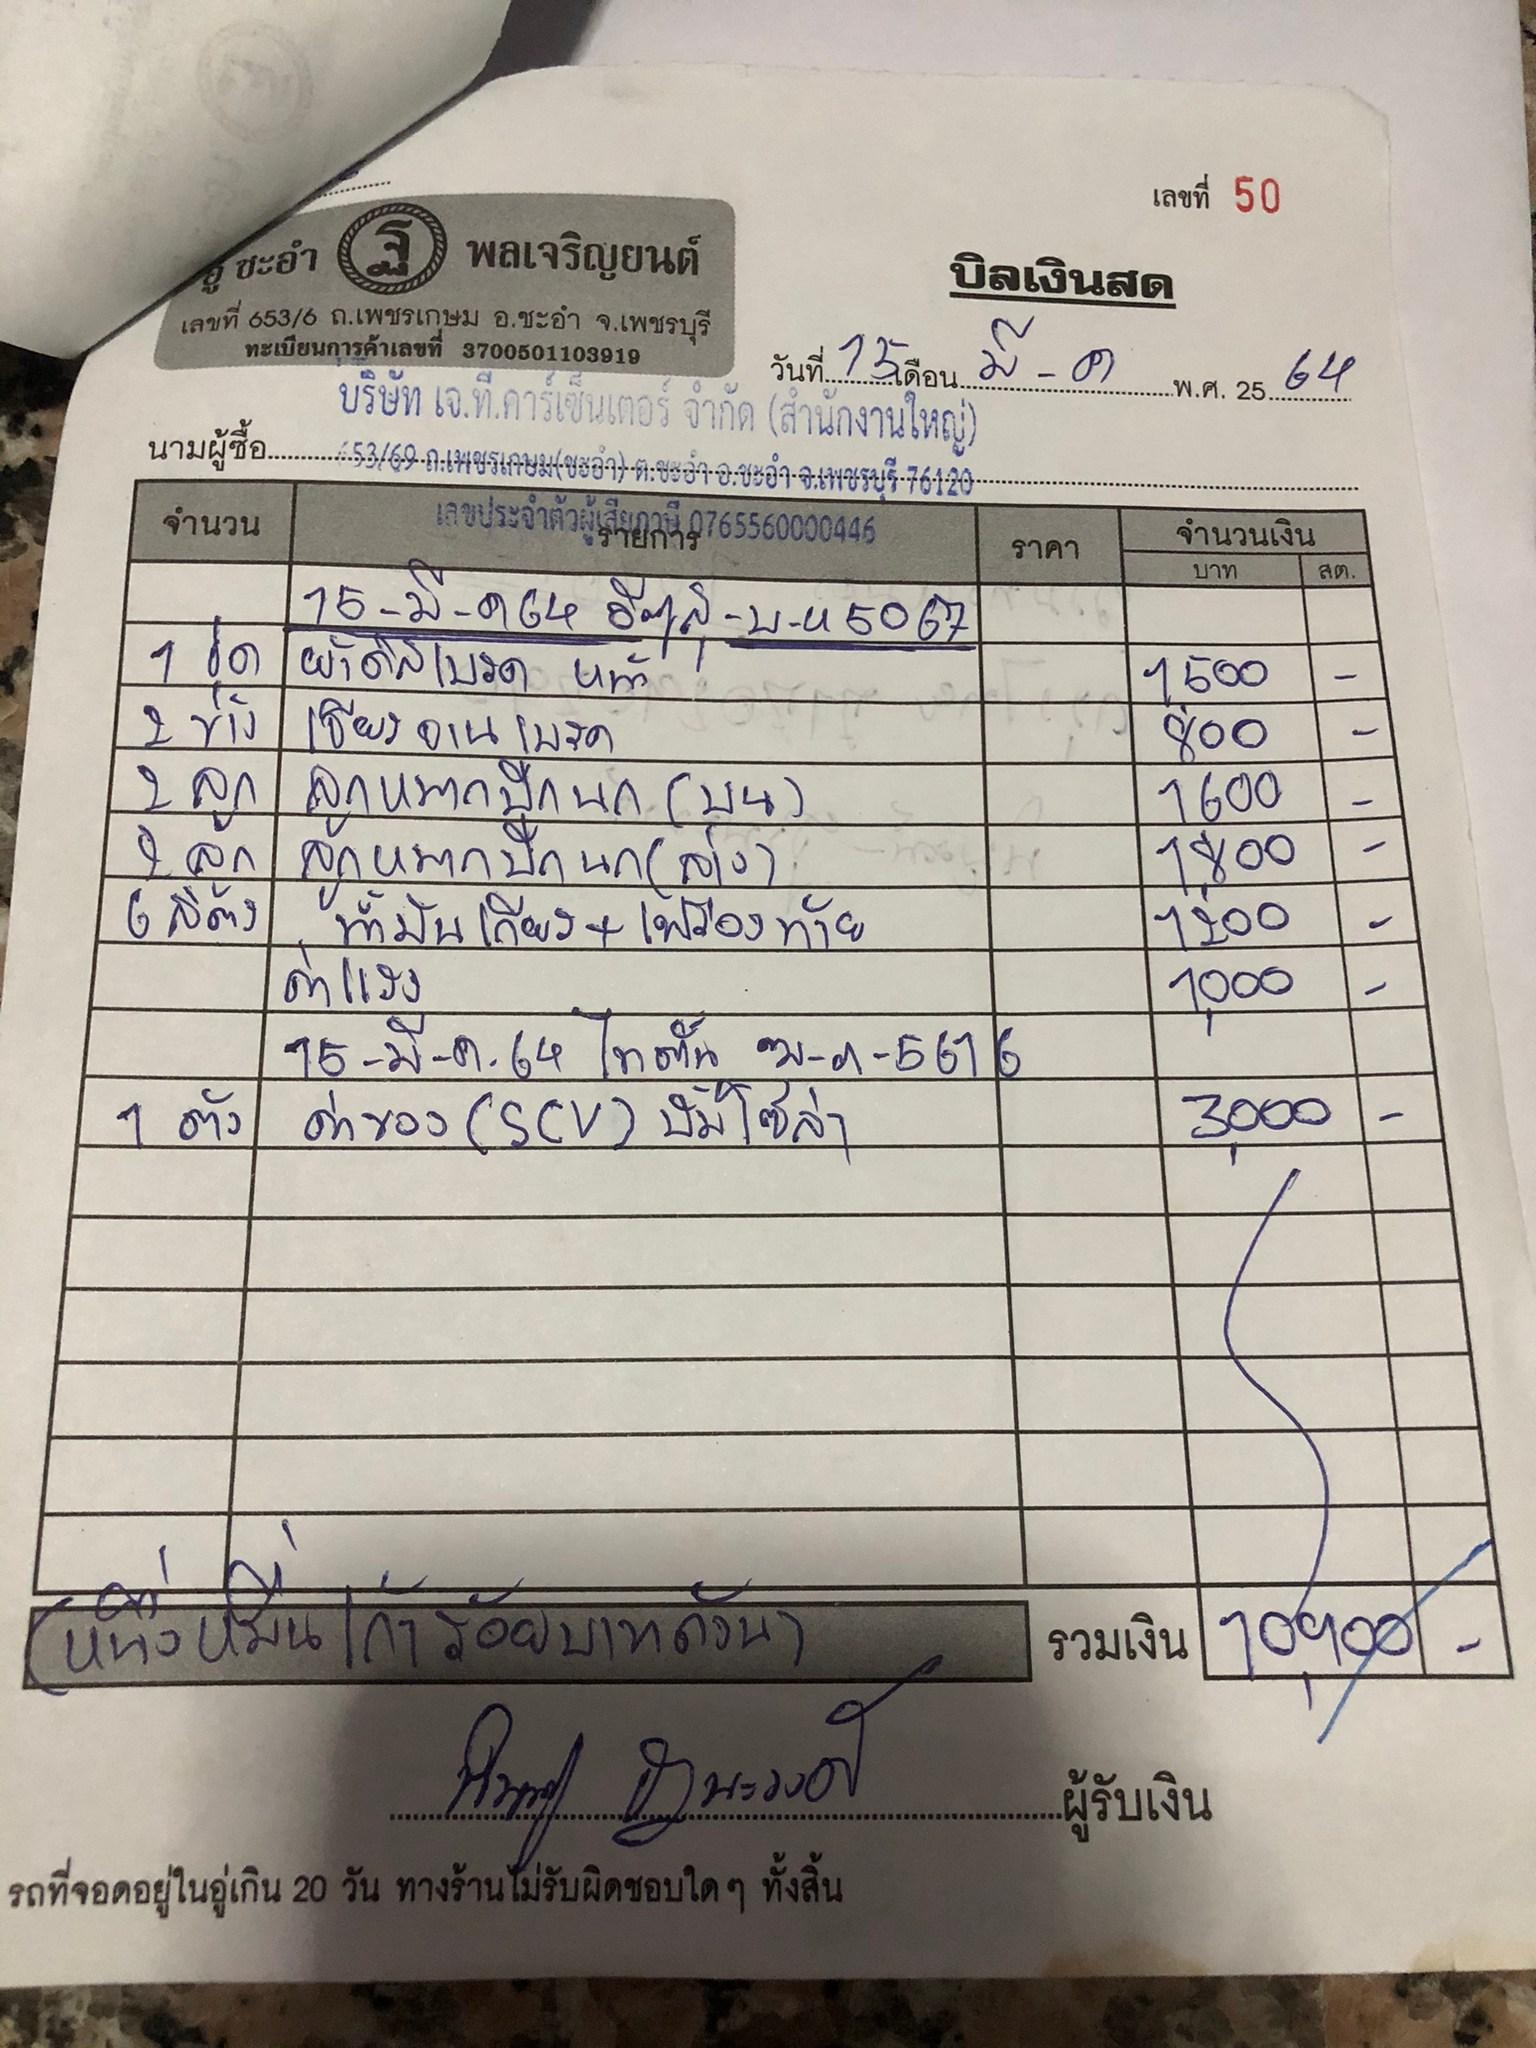 เลขที่ 50
อู่ ชะอำ ฐ พลเจริญยนต์
เลขที่ 653/6 ถ.เพชรเกษม อ.ชะอำ จ.เพชรบุรี
ทะเบียนการค้าเลขที่ 3700501103919
บิลเงินสด
วันที่ 15 เดือน มี-ค พ.ศ. 25 64
บริษัท เจ.ที.คาร์เซ็นเตอร์ จำกัด (สำนักงานใหญ่)
นามผู้ซื้อ 653/69 ถ.เพชรเกษม(ชะอำ) ต.ชะอำ อ.ชะอำ จ.เพชรบุรี 76120
เลขประจำตัวผู้เสียภาษี 0765560000446
จำนวน รายการ ราคา จำนวนเงิน
บาท สต.
15-มี-ค 64 อีซูซุ-บ-ห 5067
1 ชุด ผ้าดิสเบรค หน้า 1500 -
2 ข้าง เจียรจานเบรค 800 -
2 ลูก ลูกหมากปีกนก (บน) 1600 -
2 ลูก ลูกหมากปีกนก (ล่าง) 1800 -
6 ลิตร น้ำมันเกียร์ + เฟืองท้าย 1200 -
ค่าแรง 1000 -
15-มี-ค.64 ไทตัน 5616
1 ตัว ค่าของ (SCV) ปั้มโซล่า 3000 -
(หนึ่งหมื่นเก้าร้อยบาทถ้วน) รวมเงิน 10900 -
ผู้รับเงิน
รถที่จอดอยู่ในอู่เกิน 20 วัน ทางร้านไม่รับผิดชอบใดๆ ทั้งสิ้น